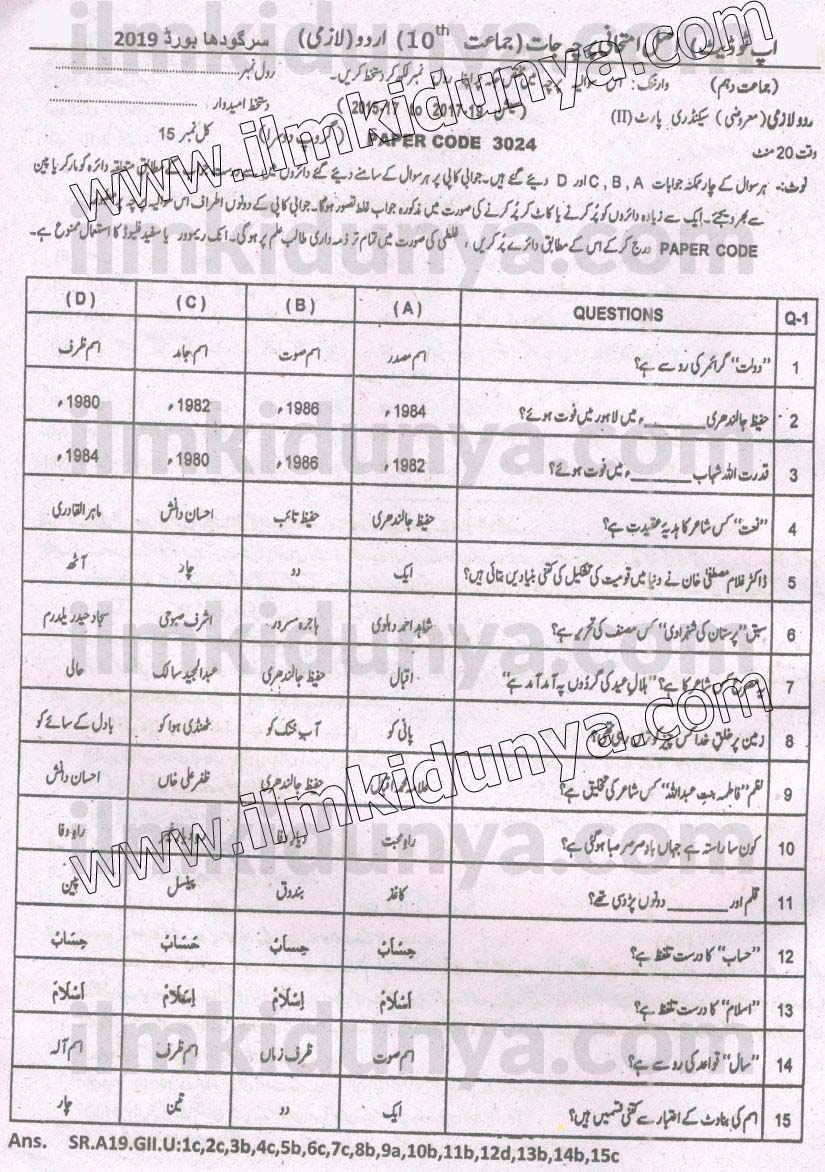 اپ ٹو ڈیٹ اصل امتحانی پرچہ جات (جماعت 10th) اردو (لازمی) سرگودھا بورڈ 2019
(جماعت دہم) وارننگ: اس سوالیہ پرچہ رول نمبر لکھ کر دستخط کریں۔ رول نمبر
ردو لازمی (معروضی) سیکنڈری پارٹ (II) ( 2015-17 to 2017-19 ) دستخط امیدوار
وقت 20 منٹ PAPER CODE 3024 کل نمبر 15
نوٹ:- ہر سوال کے چار ممکنہ جوابات A , B , C اور D دیئے گئے ہیں۔ جوابی کاپی پر ہر سوال کے سامنے دیئے گئے دائروں میں سے درست جواب کے مطابق متعلقہ دائرہ کو مارکر یا پین
سے بھر دیجئے۔ ایک سے زیادہ دائروں کو پُر کرنے یا کاٹ کر پُر کرنے کی صورت میں مذکورہ جواب غلط تصور ہوگا۔ جوابی کاپی کے دونوں اطراف اس سوالیہ پرچہ پر
PAPER CODE درج کر کے اس کے مطابق دائرے پُر کریں ، غلطی کی صورت میں تمام تر ذمہ داری طالب علم پر ہوگی۔ انک ریموور یا سفید فلیوڈ کا استعمال ممنوع ہے۔
Q-1 QUESTIONS (A) (B) (C) (D)
1 "دولت" گرائمر کی رو سے ہے؟ اسم مصدر اسم صوت اسم جامد اسم ظرف
2 حفیظ جالندھری ______ء میں لاہور میں فوت ہوئے؟ 1984ء 1986ء 1982ء 1980ء
3 قدرت اللہ شہاب ______ء میں فوت ہوئے؟ 1982ء 1986ء 1980ء 1984ء
4 "نعت" کس شاعر کا ہدیہ عقیدت ہے؟ حفیظ جالندھری حفیظ تائب احسان دانش ماہر القادری
5 ڈاکٹر غلام مصطفیٰ خان نے دنیا میں قومیت کی تشکیل کی کتنی بنیادیں بتائی ہیں؟ ایک دو چار آٹھ
6 سبق "پرستان کی شہزادی" کس مصنف کی تحریر ہے؟ شاہد احمد دہلوی ہاجرہ مسرور اشرف صبوحی سجاد حیدر یلدرم
7 یہ مصرع کس شاعر کا ہے؟ "ہلالِ عید کی گردُوں پہ آمد آمد ہے" اقبال حفیظ جالندھری عبدالمجید سالک حالی
8 زمین پر خلقِ خدا کس چیز کو پانی کو آبِ خنک کو ٹھنڈی ہوا کو بادل کے سائے کو
9 نظم "فاطمہ بنتِ عبداللہ" کس شاعر کی تخلیق ہے؟ علامہ محمد اقبال حفیظ جالندھری ظفر علی خاں احسان دانش
10 کون سا راستہ ہے جہاں بادِ صرصر صبا ہوگئی ہے؟ راہِ محبت راہِ وفا
11 قلم اور ______ دونوں پڑوسی تھے؟ کاغذ بندوق پینسل پین
12 "حساب" کا درست تلفظ ہے؟ حِسَابْ حِسابُ حَسَابُ حِسَابْ
13 "اسلام" کا درست تلفظ ہے؟ اَسْلامْ اِسْلَامْ اِسَلَامْ اُسْلَامْ
14 "سال" قواعد کی رو سے ہے؟ اسم صوت ظرف زماں اسم ظرف اسم آلہ
15 اسم کی بناوٹ کے اعتبار سے کتنی قسمیں ہیں؟ ایک دو تین چار
Ans. SR.A19.GII.U:1c,2c,3b,4c,5b,6c,7c,8b,9a,10b,11b,12d,13b,14b,15c
www.ilmkidunya.com
www.ilmkidunya.com
ilmkidunya.com
ilmkidunya.com
ilmkidunya.com
ilmkidunya.com
ilmkidunya.com
ilmkidunya.com